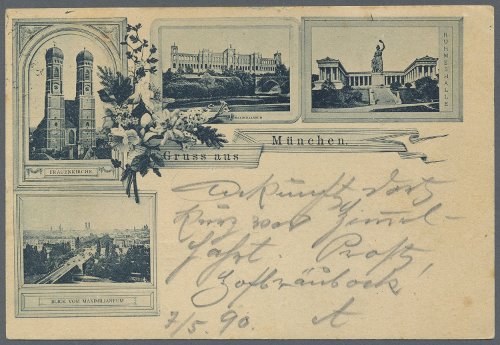 FRAUENKIRCHE.
MAXIMILIANEUM
RUHMESHALLE
Gruss aus München.
BLICK VOM MAXIMILIANEUM
Ankunft dort
kurz vor Himmel-
fahrt. Prost,
Hofbräubock!
7/5. 90. A